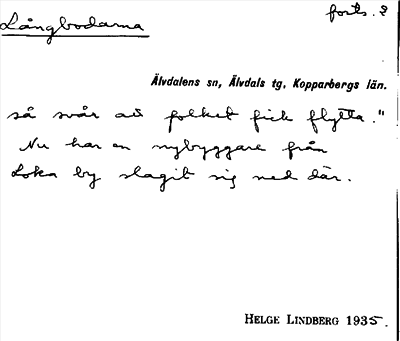 Långbodarna
forts. 2
Älvdalens sn, Älvdals tg, Kopparbergs län.
så svår att folket fick flytta."
Nu har en nybyggare från
Loka by slagit sig ned där.
HELGE LINDBERG 1935.